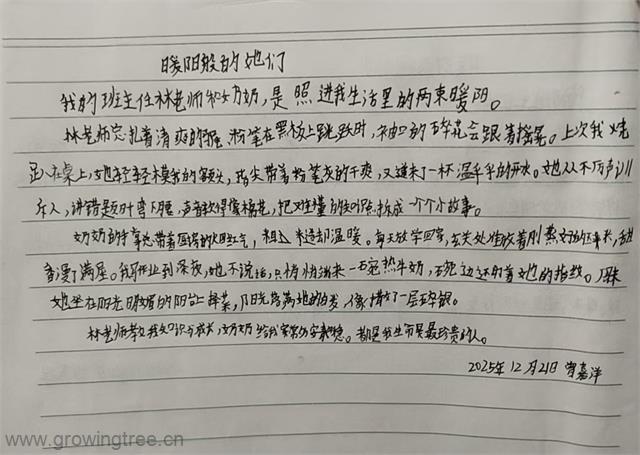 暖阳般的她们
我的班主任林老师和奶奶,是照进我生活里的两束暖阳。
林老师总扎着清爽的 粉笔在黑板上跳跃时,袖口的碎花会跟着摇晃。上次我烧
趴在桌上,她轻轻摸我的额头,指尖带着粉笔灰的干爽,又递来了一杯温半的开水。她从不厉声训
斥人,讲错题时弯下腰,声音软得像棉花,把难懂的知识点拆成一个个小故事。
奶奶的手掌总带着 的烟红气,粗 却温暖。每天放学回家, 处 放着刚蒸好的玉米,甜
香漫了满屋。我写作业到深夜,她不说话,只悄悄端来一碗热牛奶,碗边还 着她的指纹。周末
她坐在阳光 的阳台上择菜,阳光落满她的白发,像撒了一层碎银。
林老师教我知识与成长,奶奶给我 安稳。都是我生命里最珍贵的人。
2025年12月21日 曾嘉洋
www.growingtree.cn